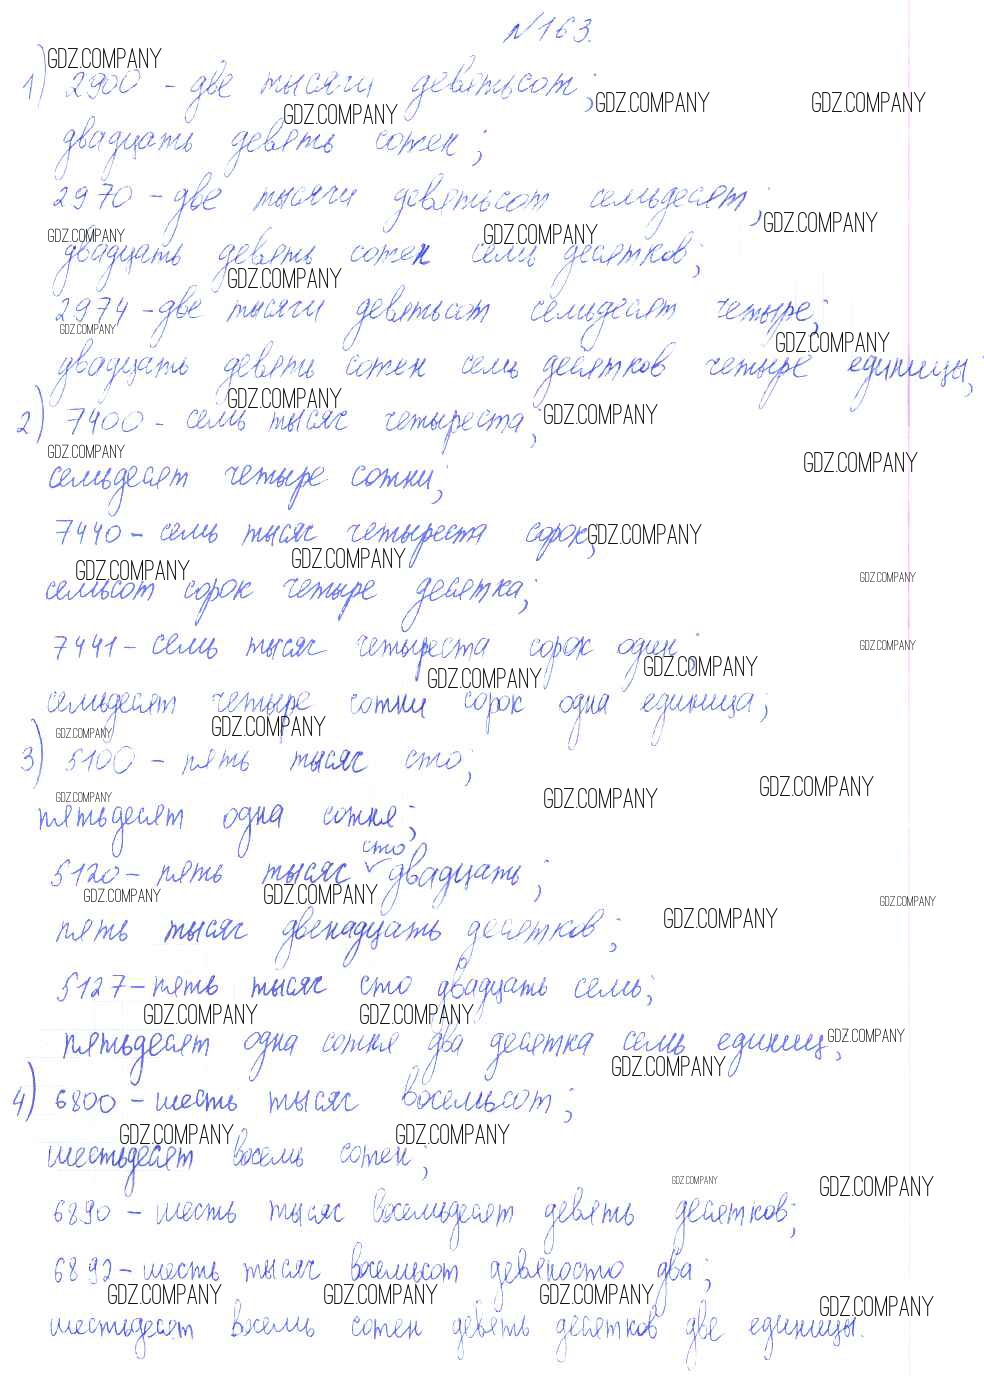 №163.
1) 2900 - две тысячи девятьсот;
двадцать девять сотен;
2970 - две тысячи девятьсот семьдесят;
двадцать девять сотен семь десятков;
2974 - две тысячи девятьсот семьдесят четыре;
двадцать девять сотен семь десятков четыре единицы;
2) 7400 - семь тысяч четыреста;
семьдесят четыре сотни;
7440 - семь тысяч четыреста сорок;
семьсот сорок четыре десятка;
7441 - семь тысяч четыреста сорок один;
семьдесят четыре сотни сорок одна единица;
3) 5100 - пять тысяч сто;
пятьдесят одна сотня;
5120 - пять тысяч сто двадцать;
пять тысяч двенадцать десятков;
5127 - пять тысяч сто двадцать семь;
пятьдесят одна сотня два десятка семь единиц;
4) 6800 - шесть тысяч восемьсот;
шестьдесят восемь сотен;
6890 - шесть тысяч восемьдесят девять десятков;
6892 - шесть тысяч восемьсот девяносто два;
шестьдесят восемь сотен девять десятков две единицы.
GDZ.COMPANY